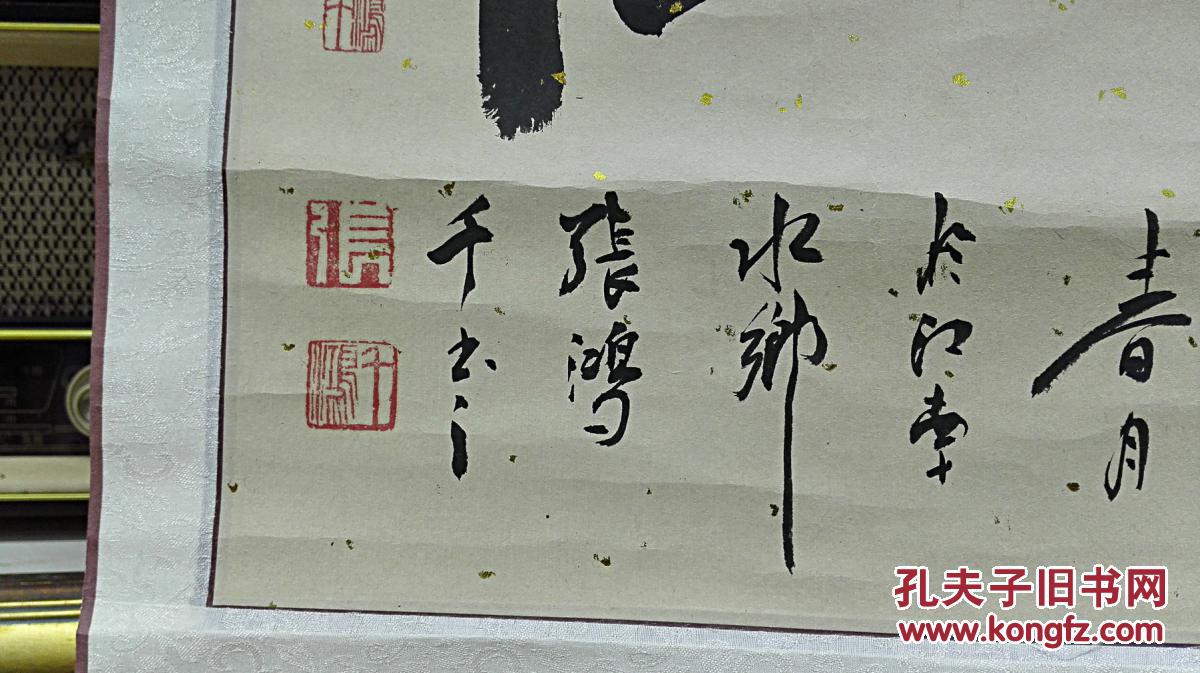 春月
於江南
水鄉
張鴻
千书之
張
鴻千
孔夫子旧书网
www.kongfz.com